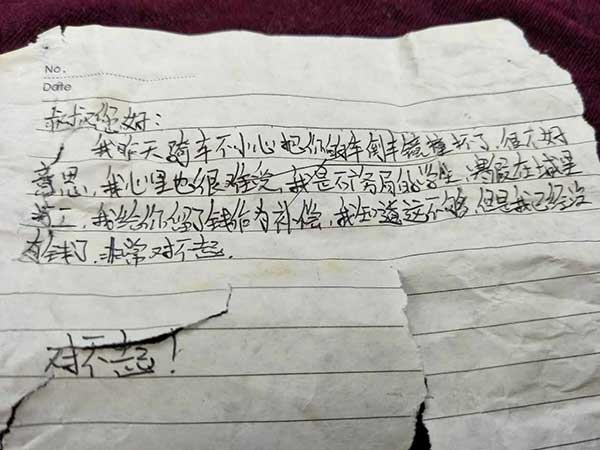 No.
Date
叔叔您好:
我昨天骑车不小心把你的车倒车镜撞坏了,很不好
意思,我心里也很难受,我是的学生,暑假在城里
打工,我给你留了钱作为补偿,我知道这不够,但是我已经没
有钱了,非常对不起.
对不起!